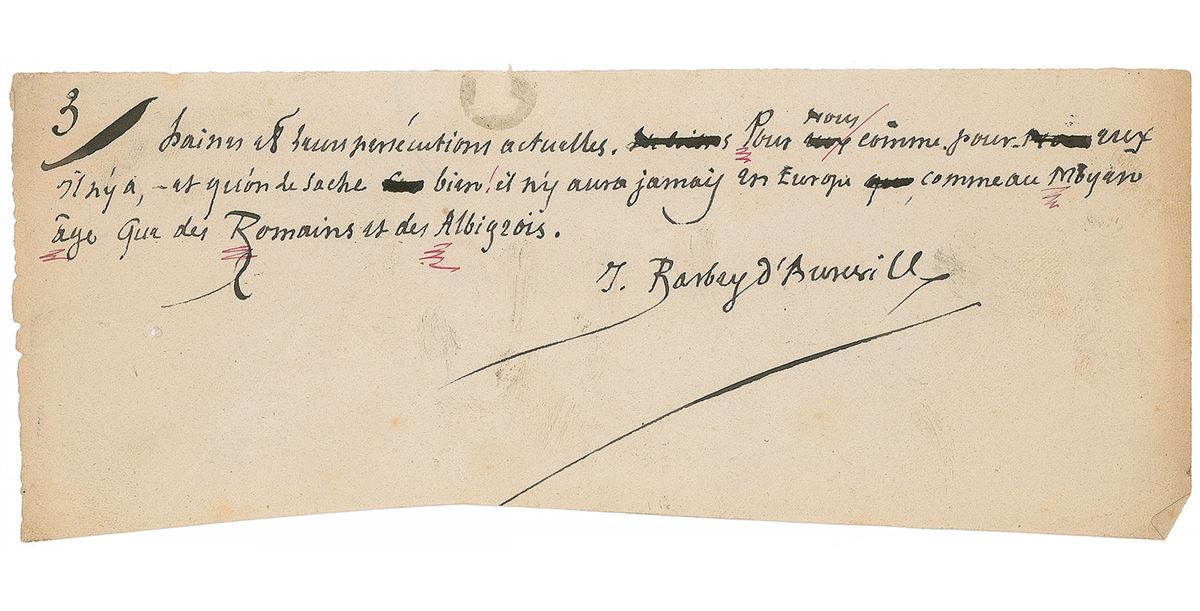 3
haines et leurs persécutions actuelles. Pour Nous comme pour eux
il n'y a, – et qu'on le sache bien! il n'y aura jamais en Europe, comme au Moyen
âge que des Romains et des Albigeois.
J. Barbey d'Aurevilly